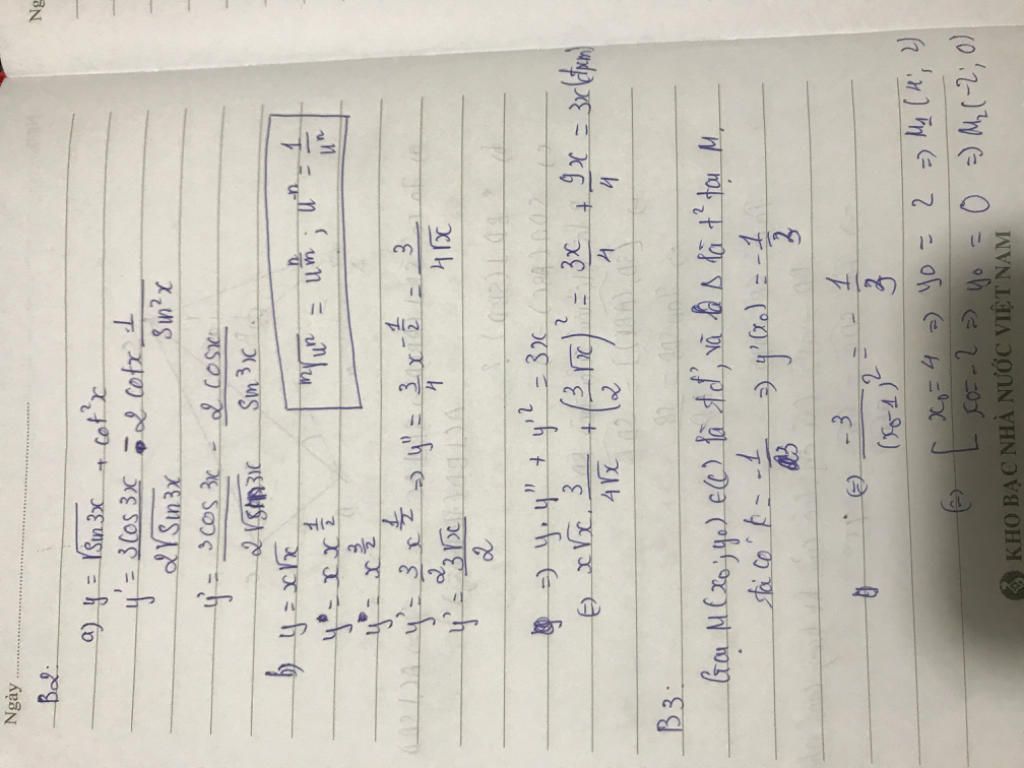 Ngày
B2:
a) y = √sin3x + cot²x
y' = 3cos3x / 2√sin3x - 2cotx · 1/sin²x
y' = 3cos3x / 2√sin3x - 2cosx / sin³x
b) y = x√x
ᵐ√uⁿ = u^(n/m) ; u⁻ⁿ = 1/uⁿ
y = x x^(1/2)
y = x^(3/2)
y' = 3/2 x^(1/2) => y'' = 3/4 x^(-1/2) = 3/(4√x)
y' = 3√x / 2
=> y.y'' + y'² = 3x
(=) x√x . 3/(4√x) + (3/2 √x)² = 3x/4 + 9x/4 = 3x (đpcm)
B3:
Gọi M(x₀; y₀) ∈ (C) là tđ', và Δ là t² tại M.
ta có p = -1/3 => y'(x₀) = -1/3
(=) -3/(x₀-1)² = -1/3
(=) [ x₀ = 4 => y₀ = 2 => M₁(4; 2)
x₀ = -2 => y₀ = 0 => M₂(-2; 0)
KHO BẠC NHÀ NƯỚC VIỆT NAM